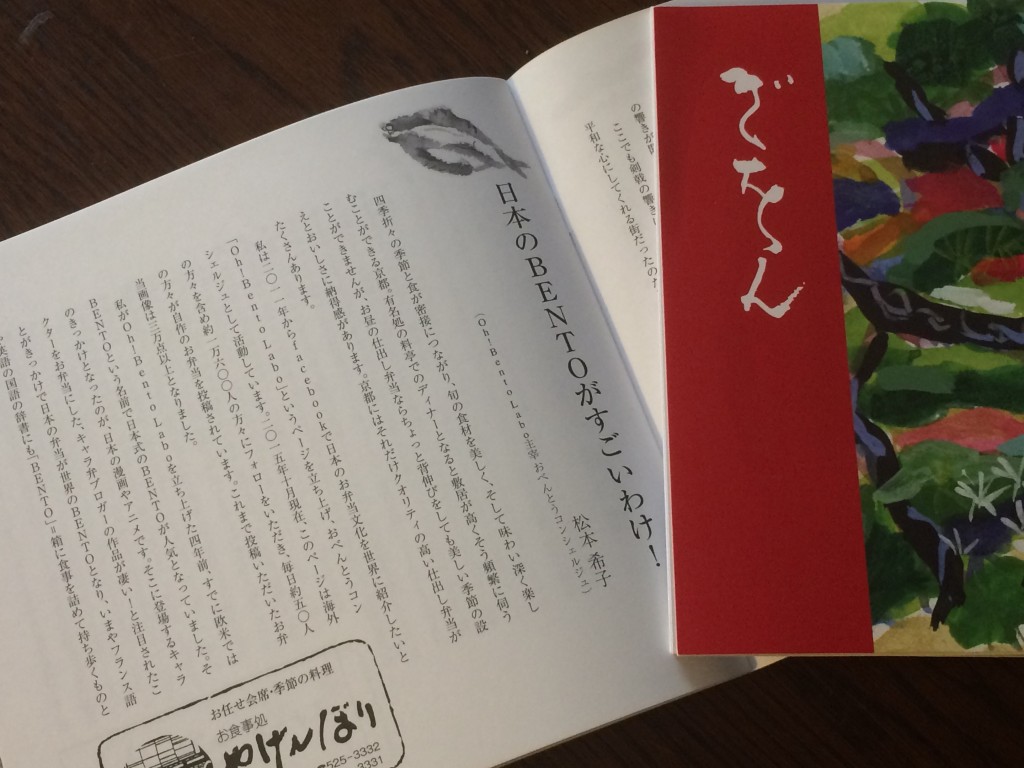 ぎをん
の響きが
ここでも剣戟の響き
平和な心にしてくれる街だったの
日本のBENTOがすごいわけ！
松本 希子
（Oh!Bento Labo主宰 おべんとうコンシェルジュ）
四季折々の季節と食が密接につながり、旬の食材を美しく、そして味わい深く楽し
むことができる京都。有名処の料亭でのディナーとなると敷居が高くそう頻繁に伺う
ことができませんが、お昼の仕出し弁当ならちょっと背伸びをしても美しい季節の設
えとおいしさに納得感があります。京都にはそれだけクオリティの高い仕出し弁当が
たくさんあります。
私は二〇一一年からfacebookで日本のお弁当文化を世界に紹介したいと
「Oh!Bento Labo」というページを立ち上げ、おべんとうコン
シェルジュとして活動しています。二〇一五年十月現在、このページは海外
の方々を含め約一万六〇〇〇人の方々にフォローをいただき、毎日約五〇人
の方々が自作のお弁当を投稿されています。これまで投稿いただいたお弁
当画像は三万点以上となりました。
私がOh!Bento Laboを立ち上げた四年前、すでに欧米では
BENTOという名前で日本式のBENTOが人気となっていました。そ
のきっかけとなったのが、日本の漫画やアニメです。そこに登場するキャラ
クターをお弁当にした、キャラ弁ブロガーの作品が凄いー！と注目されたこ
とがきっかけで日本の弁当が世界のBENTOとなり、いまやフランス語
英語の国語の辞書にも「BENTO」=箱に食事を詰めて持ち歩くものと
お任せ会席・季節の料理
お食事処
やげんぼり
525-3332
3331